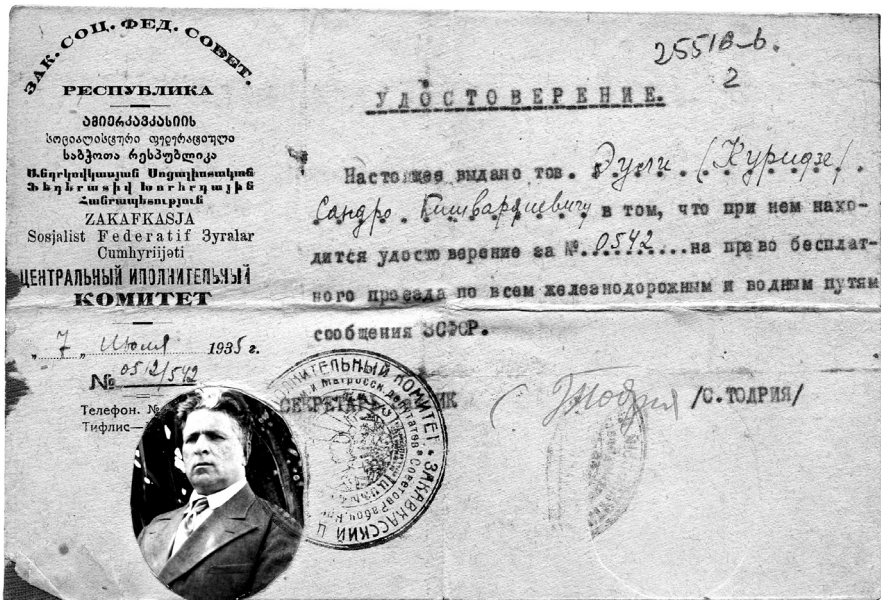 ЗАК. СОЦ. ФЕД. СОВЕТ.
РЕСПУБЛИКА
ამიერკავკასიის
სოციალისტური ფედერაციული
საბჭოთა რესპუბლიკა
Անդրկովկասյան Սոցիալիստական
Ֆեդերատիվ Խորհրդային
Հանրապետություն
ZAKAFKASJA
Sosjalist Federatif Зyralar
Cumhyriijəti
ЦЕНТРАЛЬНЫЙ ИПОЛНИТЕЛЬНЫЙ
КОМИТЕТ
„ 7 „ Июля 1935 г.
№ 0512/542
Телефон. №
Тифлис—
2551в-б.
2
УДОСТОВЕРЕНИЕ.
Настоящее выдано тов. Эули (Куридзе)
Сандро в том, что при нем нахо-
дится удостоверение за №. 0542 на право бесплат-
ного проезда по всем железнодорожным и водным путям
сообщения ЗСФСР.
СЕКРЕТАРЬ ИК
/С. ТОДРИЯ/
ЗАКАВКАССКИЙ Ц ИСПОЛНИТЕЛЬНЫЙ КОМИТЕТ
Советов Рабоч. Кр и Матросск. депутатов